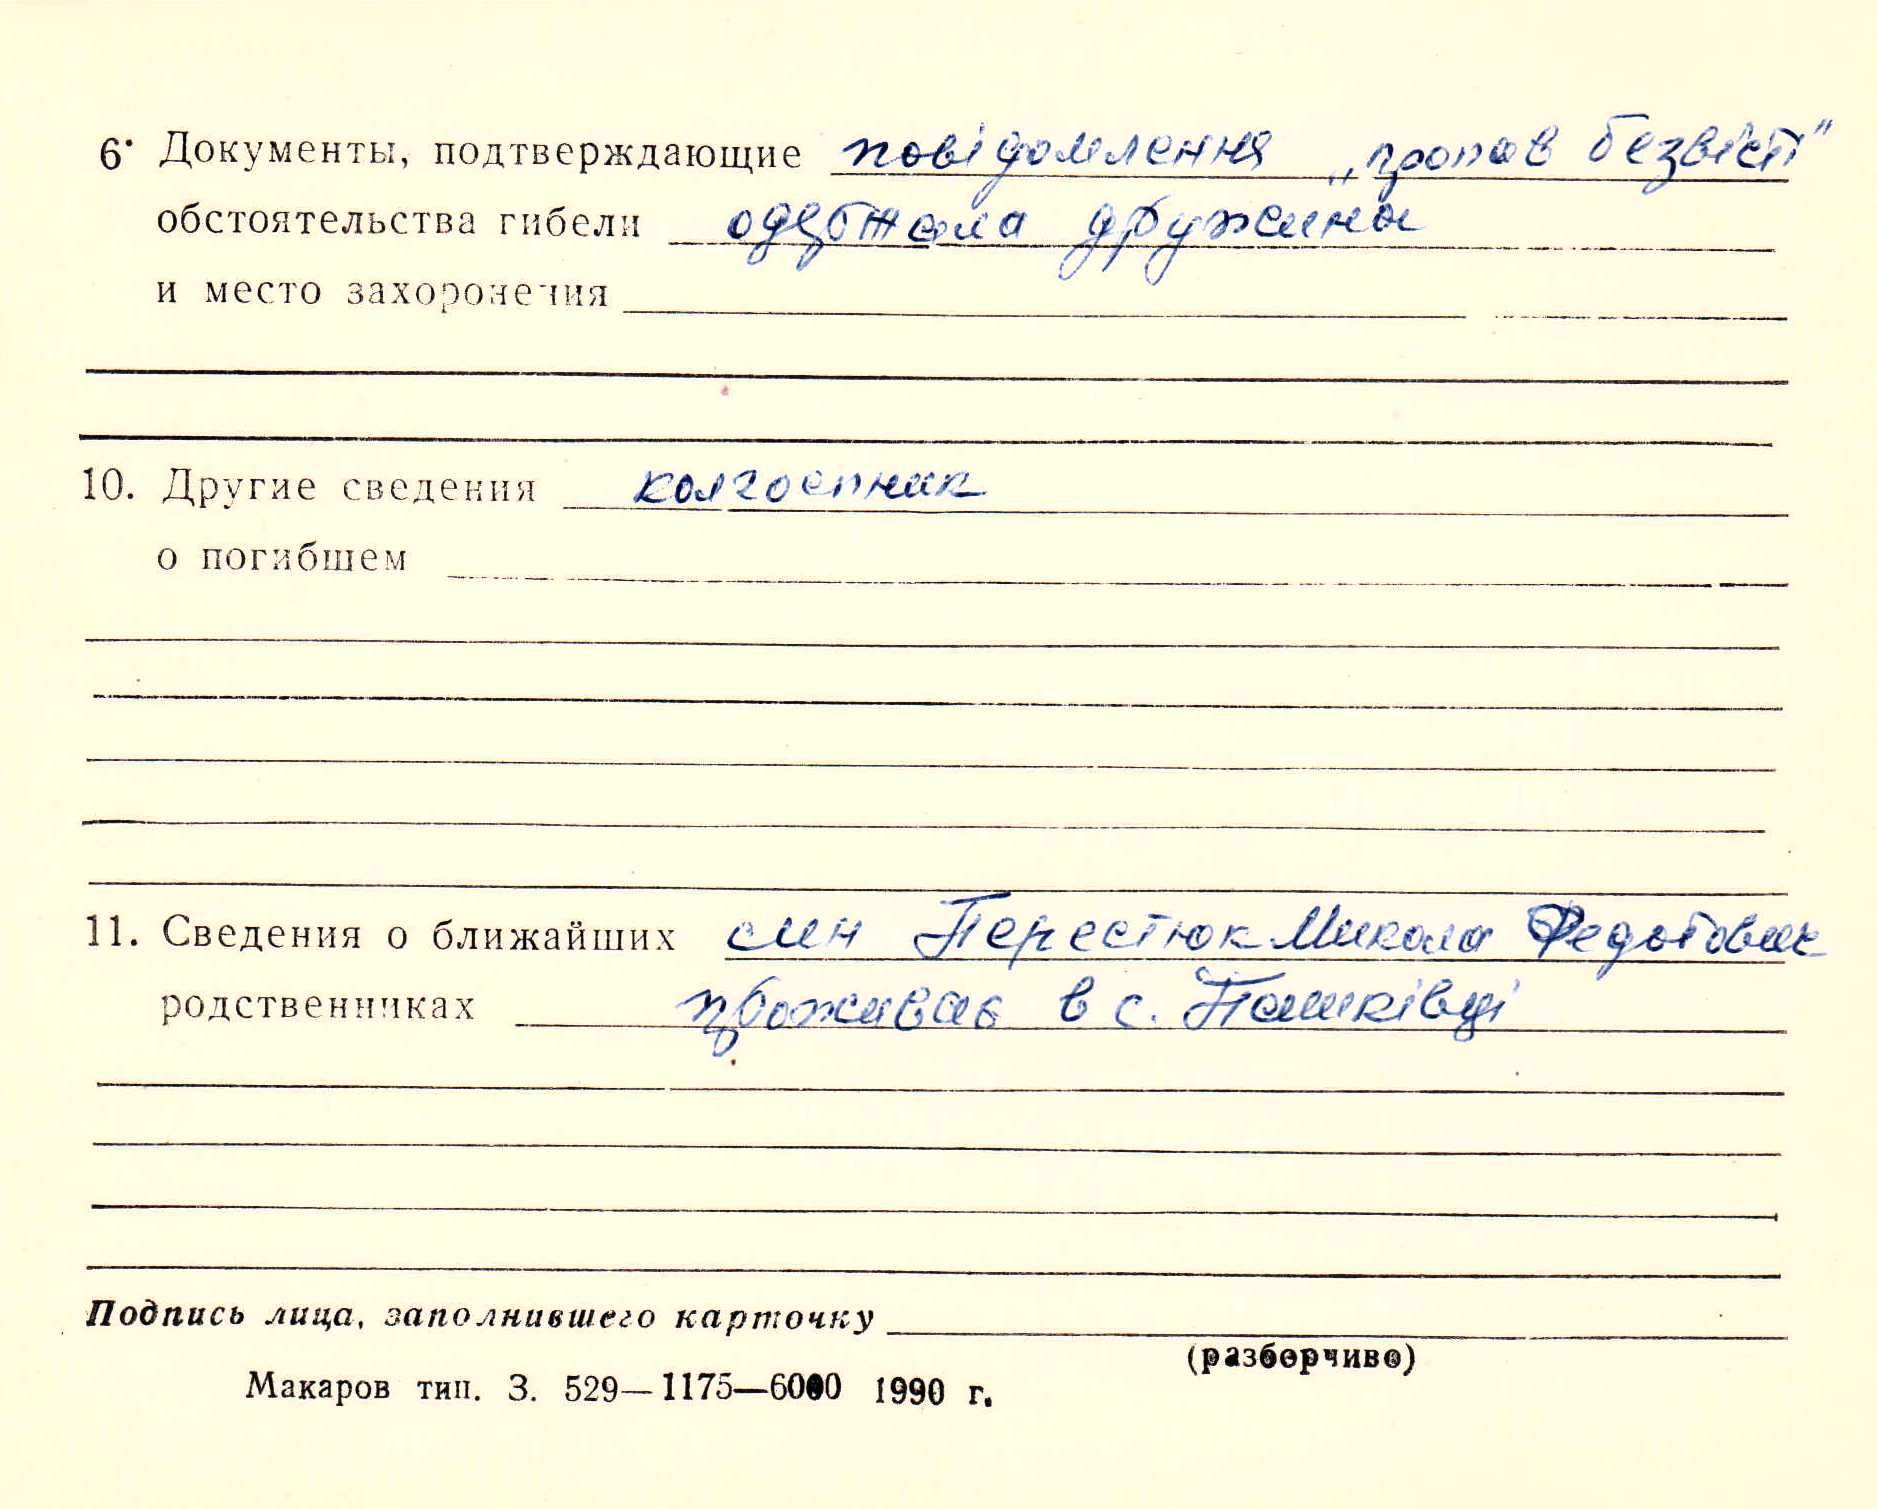 6. Документы, подтверждающие повідомлення „пропав безвісті"
обстоятельства гибели одержала дружина
и место захоронения
10. Другие сведения колгоспник
о погибшем
11. Сведения о ближайших син Перестюк Микола Федотович
родственниках проживає в с. Пашківці
Подпись лица, заполнившего карточку
(разборчиво)
Макаров тип. З. 529—1175—6000 1990 г.